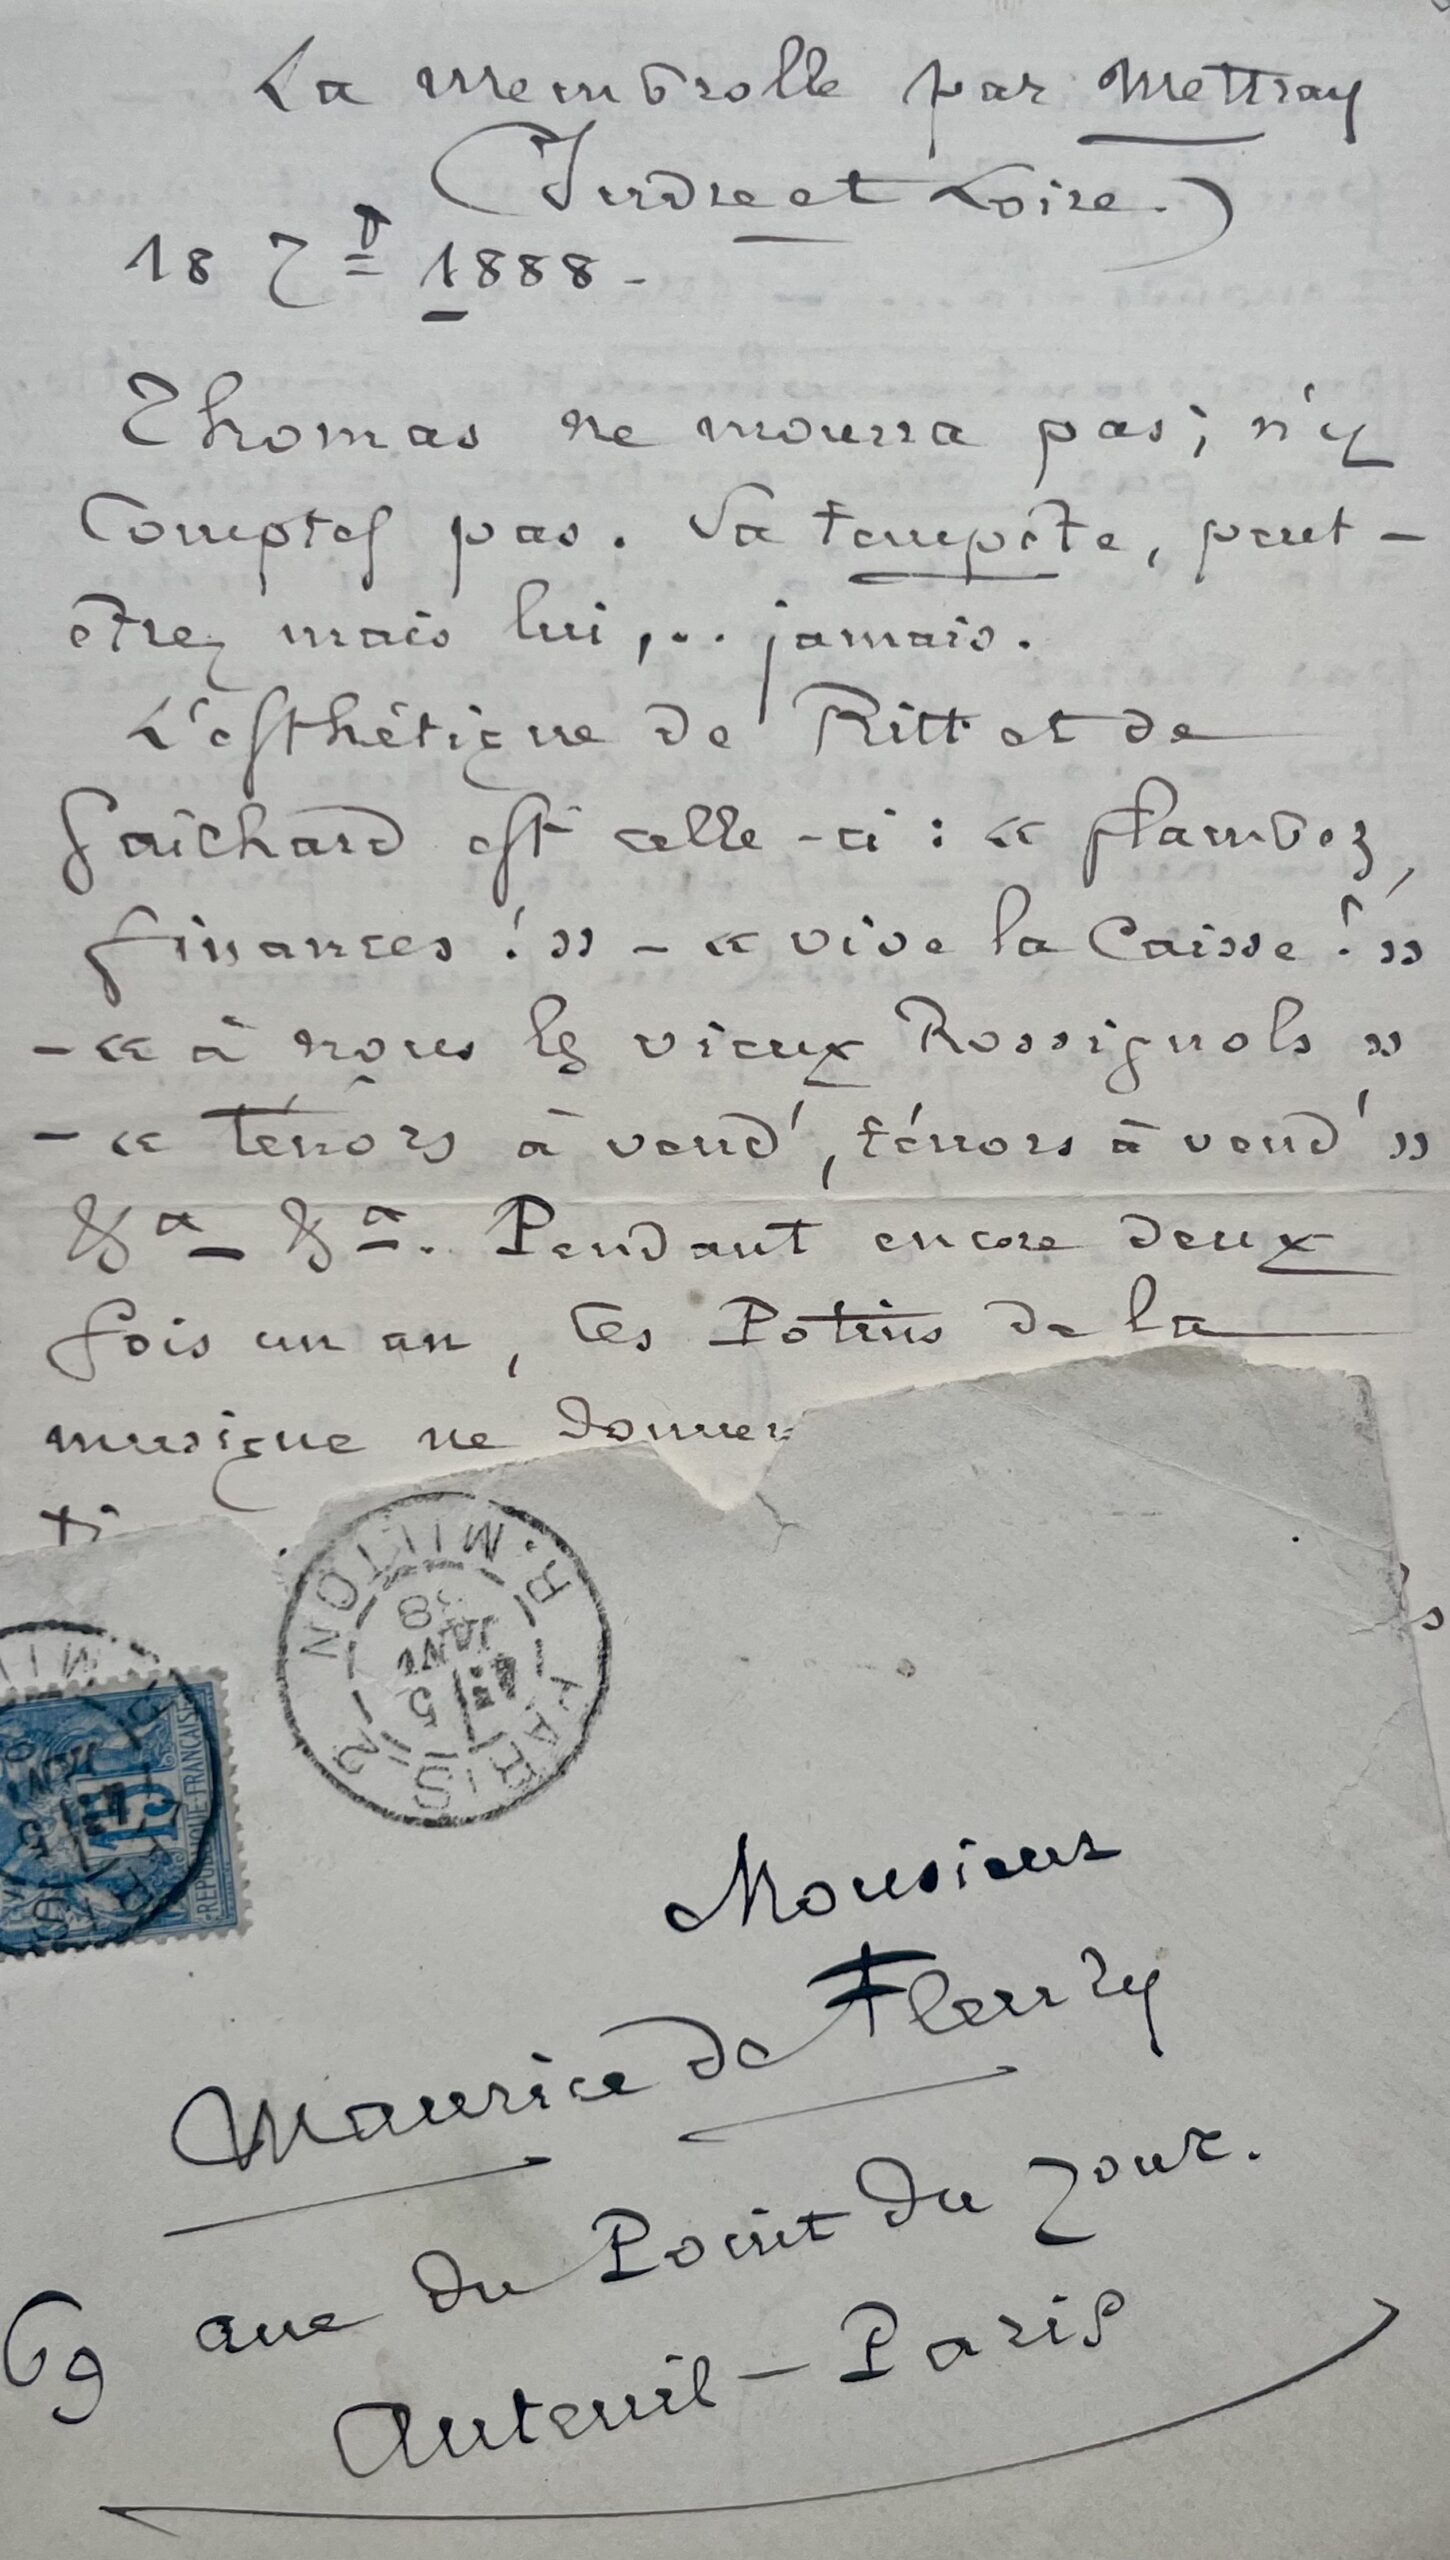 La Membrolle par Mettray
(Indre et Loire.)
18 7bre 1888 -
Thomas ne mourra pas; n'y
Comptes pas. Sa tempête, peut-
être; mais lui,... jamais.
L'esthétique de Ritt et de
Gaichard est celle-ci : « flambez,
finances ! » - « vive la Caisse ! »
- « à nous les vieux Rossignols »
- « ténors à vend', ténors à vend' »
&a &a. Pendant encore deux
fois un an, tes Potins de la
musique ne donner
ti
s
R. MILTON
PARIS 2
5
JANV.
15
REPUBLIQUE FRANCAISE
Monsieur
Maurice de Fleury
69 rue du Point du Jour.
Auteuil - Paris